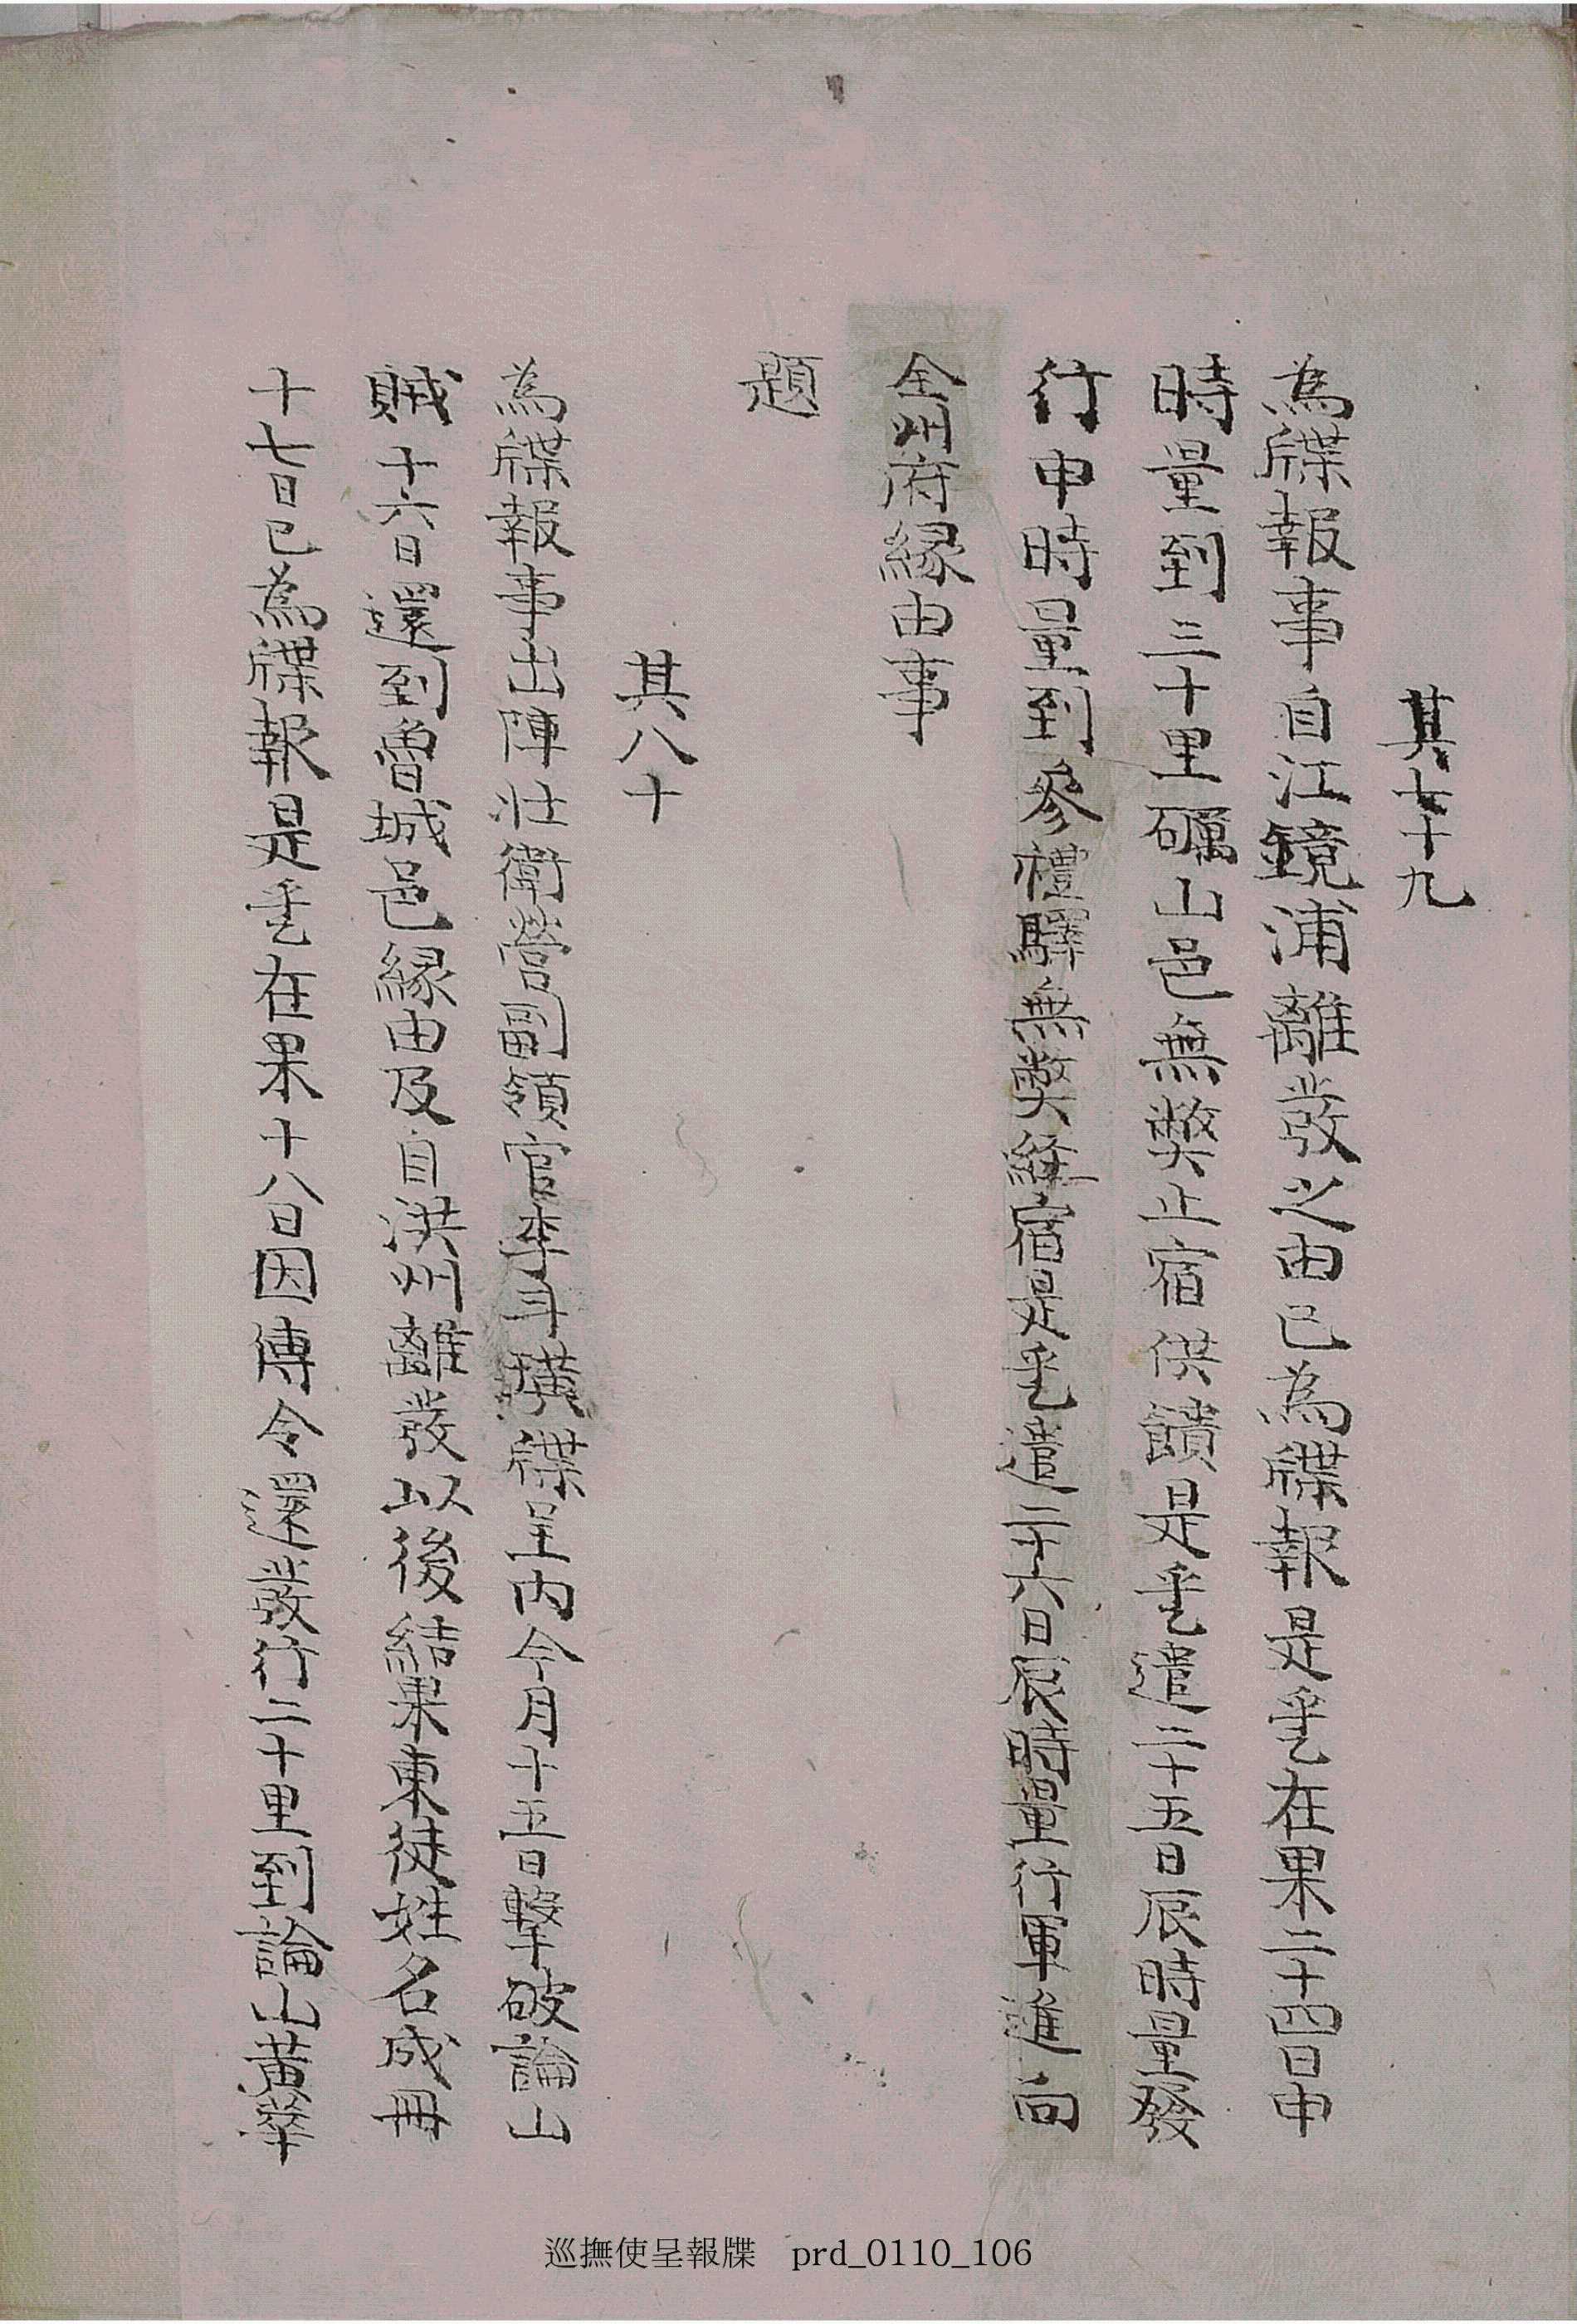 其七十九
為牒報事自江鏡浦離發之由已為牒報是乎在果二十四日申
時量到三十里礪山邑無弊止宿供饋是乎遣二十五日辰時量發
行申時量到參禮驛無弊經宿是乎遣二十六日辰時量行軍進向
全州府緣由事
題
其八十
為牒報事出陣壯衛營副領官李斗璜牒呈內今月十五日擊破論山
賊十六日還到魯城邑緣由及自洪州離發以後結果東徒姓名成冊
十七日已為牒報是乎在果十八日因傳令還發行二十里到論山黃華
巡撫使呈報牒 prd_0110_106